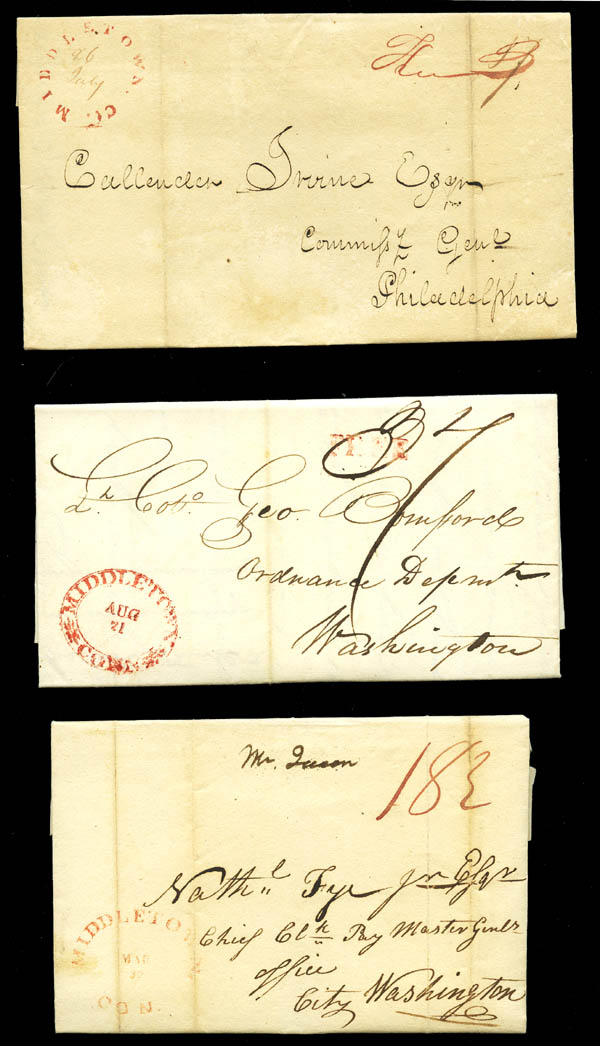 MIDDLETOWN Ct.
26
July
Free
Callender Irvine Esqr
Commissy Genl
Philadelphia
FREE
Lt. Colo. Geo. Bomford
Ordnance Depmt
Washington
MIDDLETOWN
AUG
21
CONN
Mr.
18½
Nathl Frye jnr Esqr
Chief Clk Pay Master Genls
office
City Washington
MIDDLETOWN
MAR
CON.